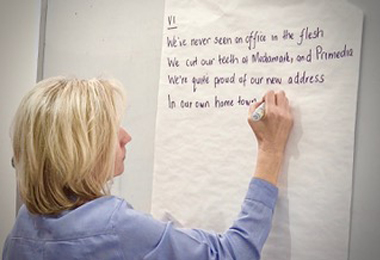 V1
We've never seen an office in the flesh
We cut our teeth at Mediamark, and Primedia
We're quite proud of our new address
In our own home town